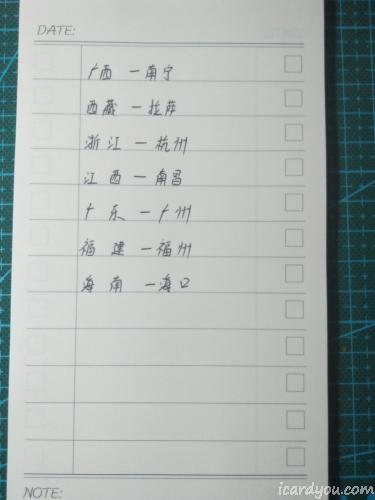 DATE:
广西 一南宁
西藏 一拉萨
浙江 一杭州
江西 一南昌
广东 一广州
福建 一福州
海南 一海口
NOTE:
icardyou.com